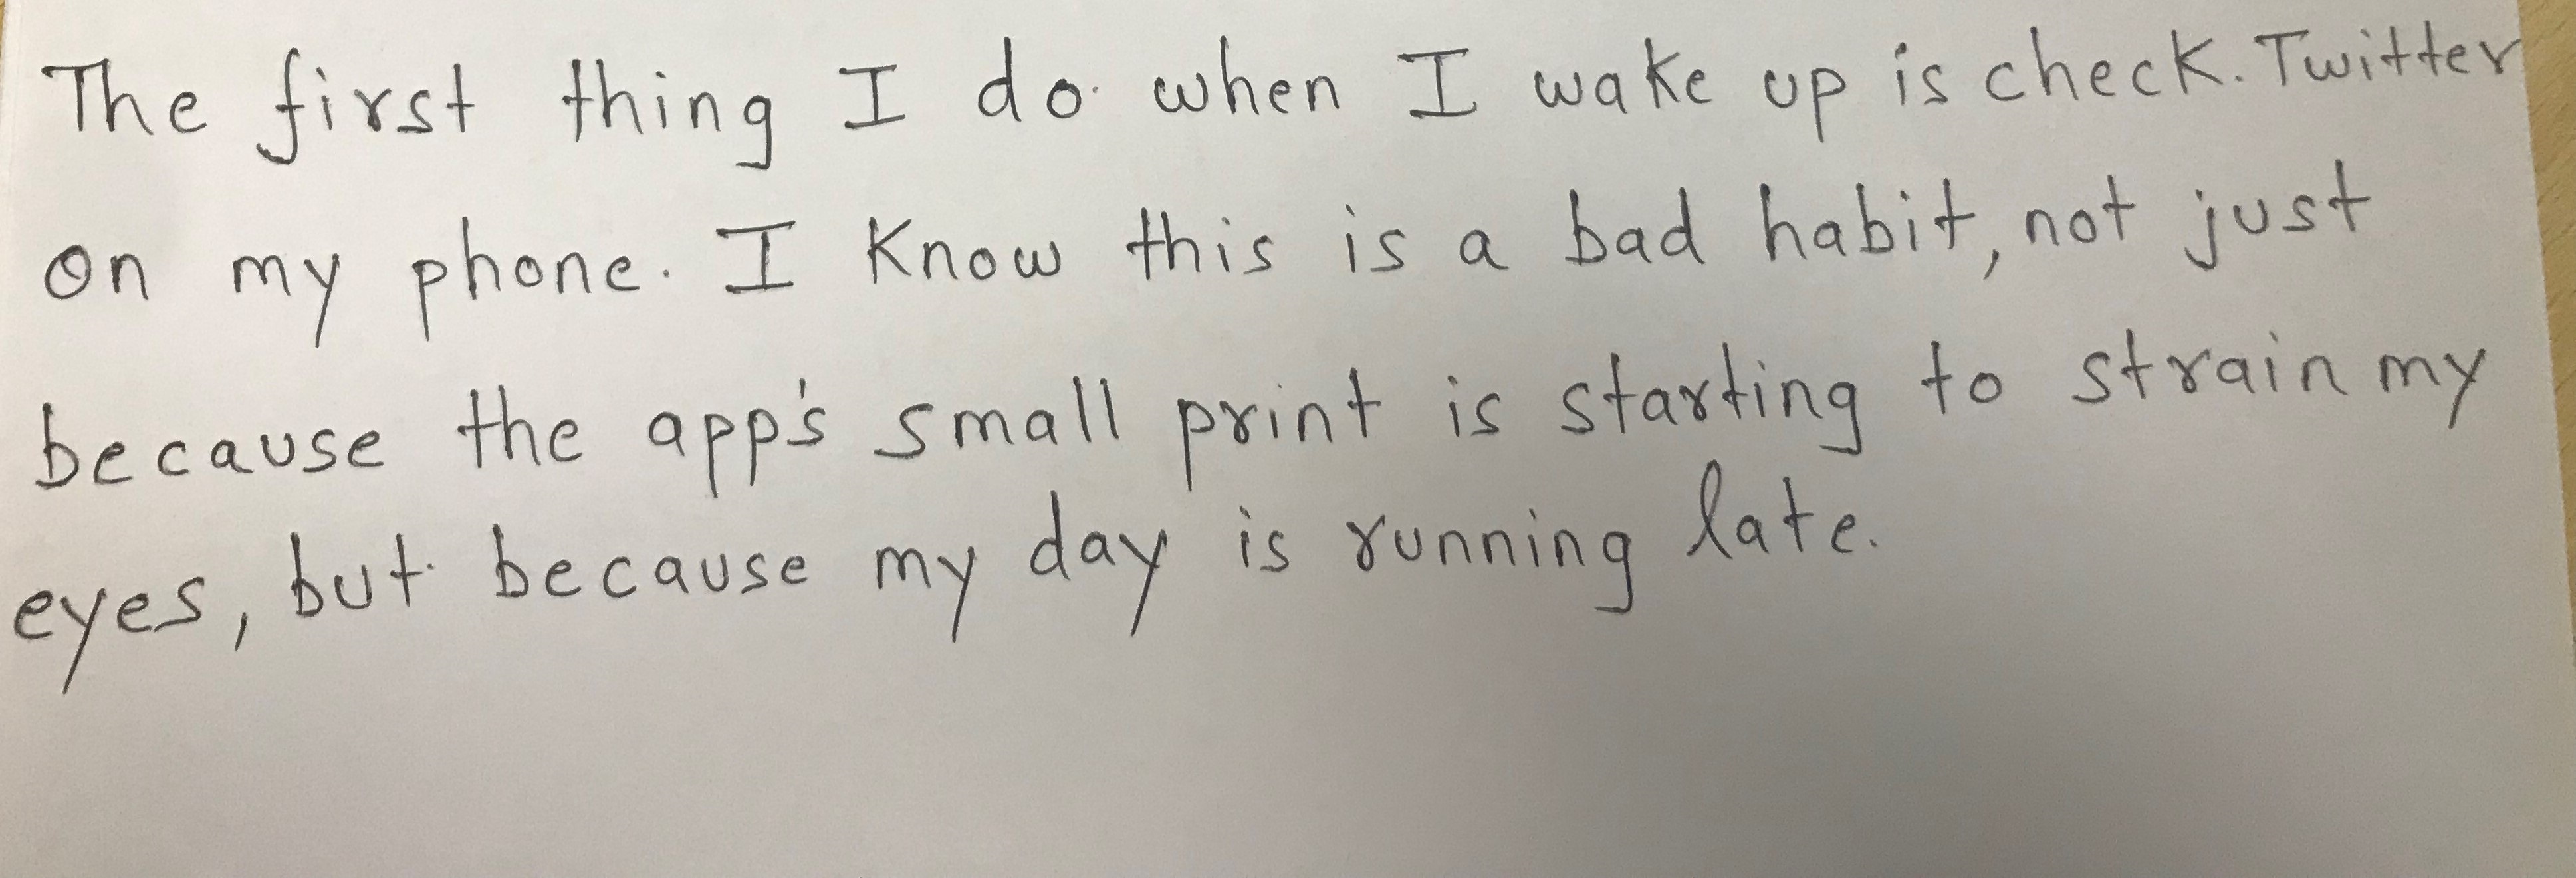 The first thing I do when I wake up is check. Twitter
on my phone. I know this is a bad habit, not just
because the app's small print is starting to strain my
eyes, but because my day is running late.